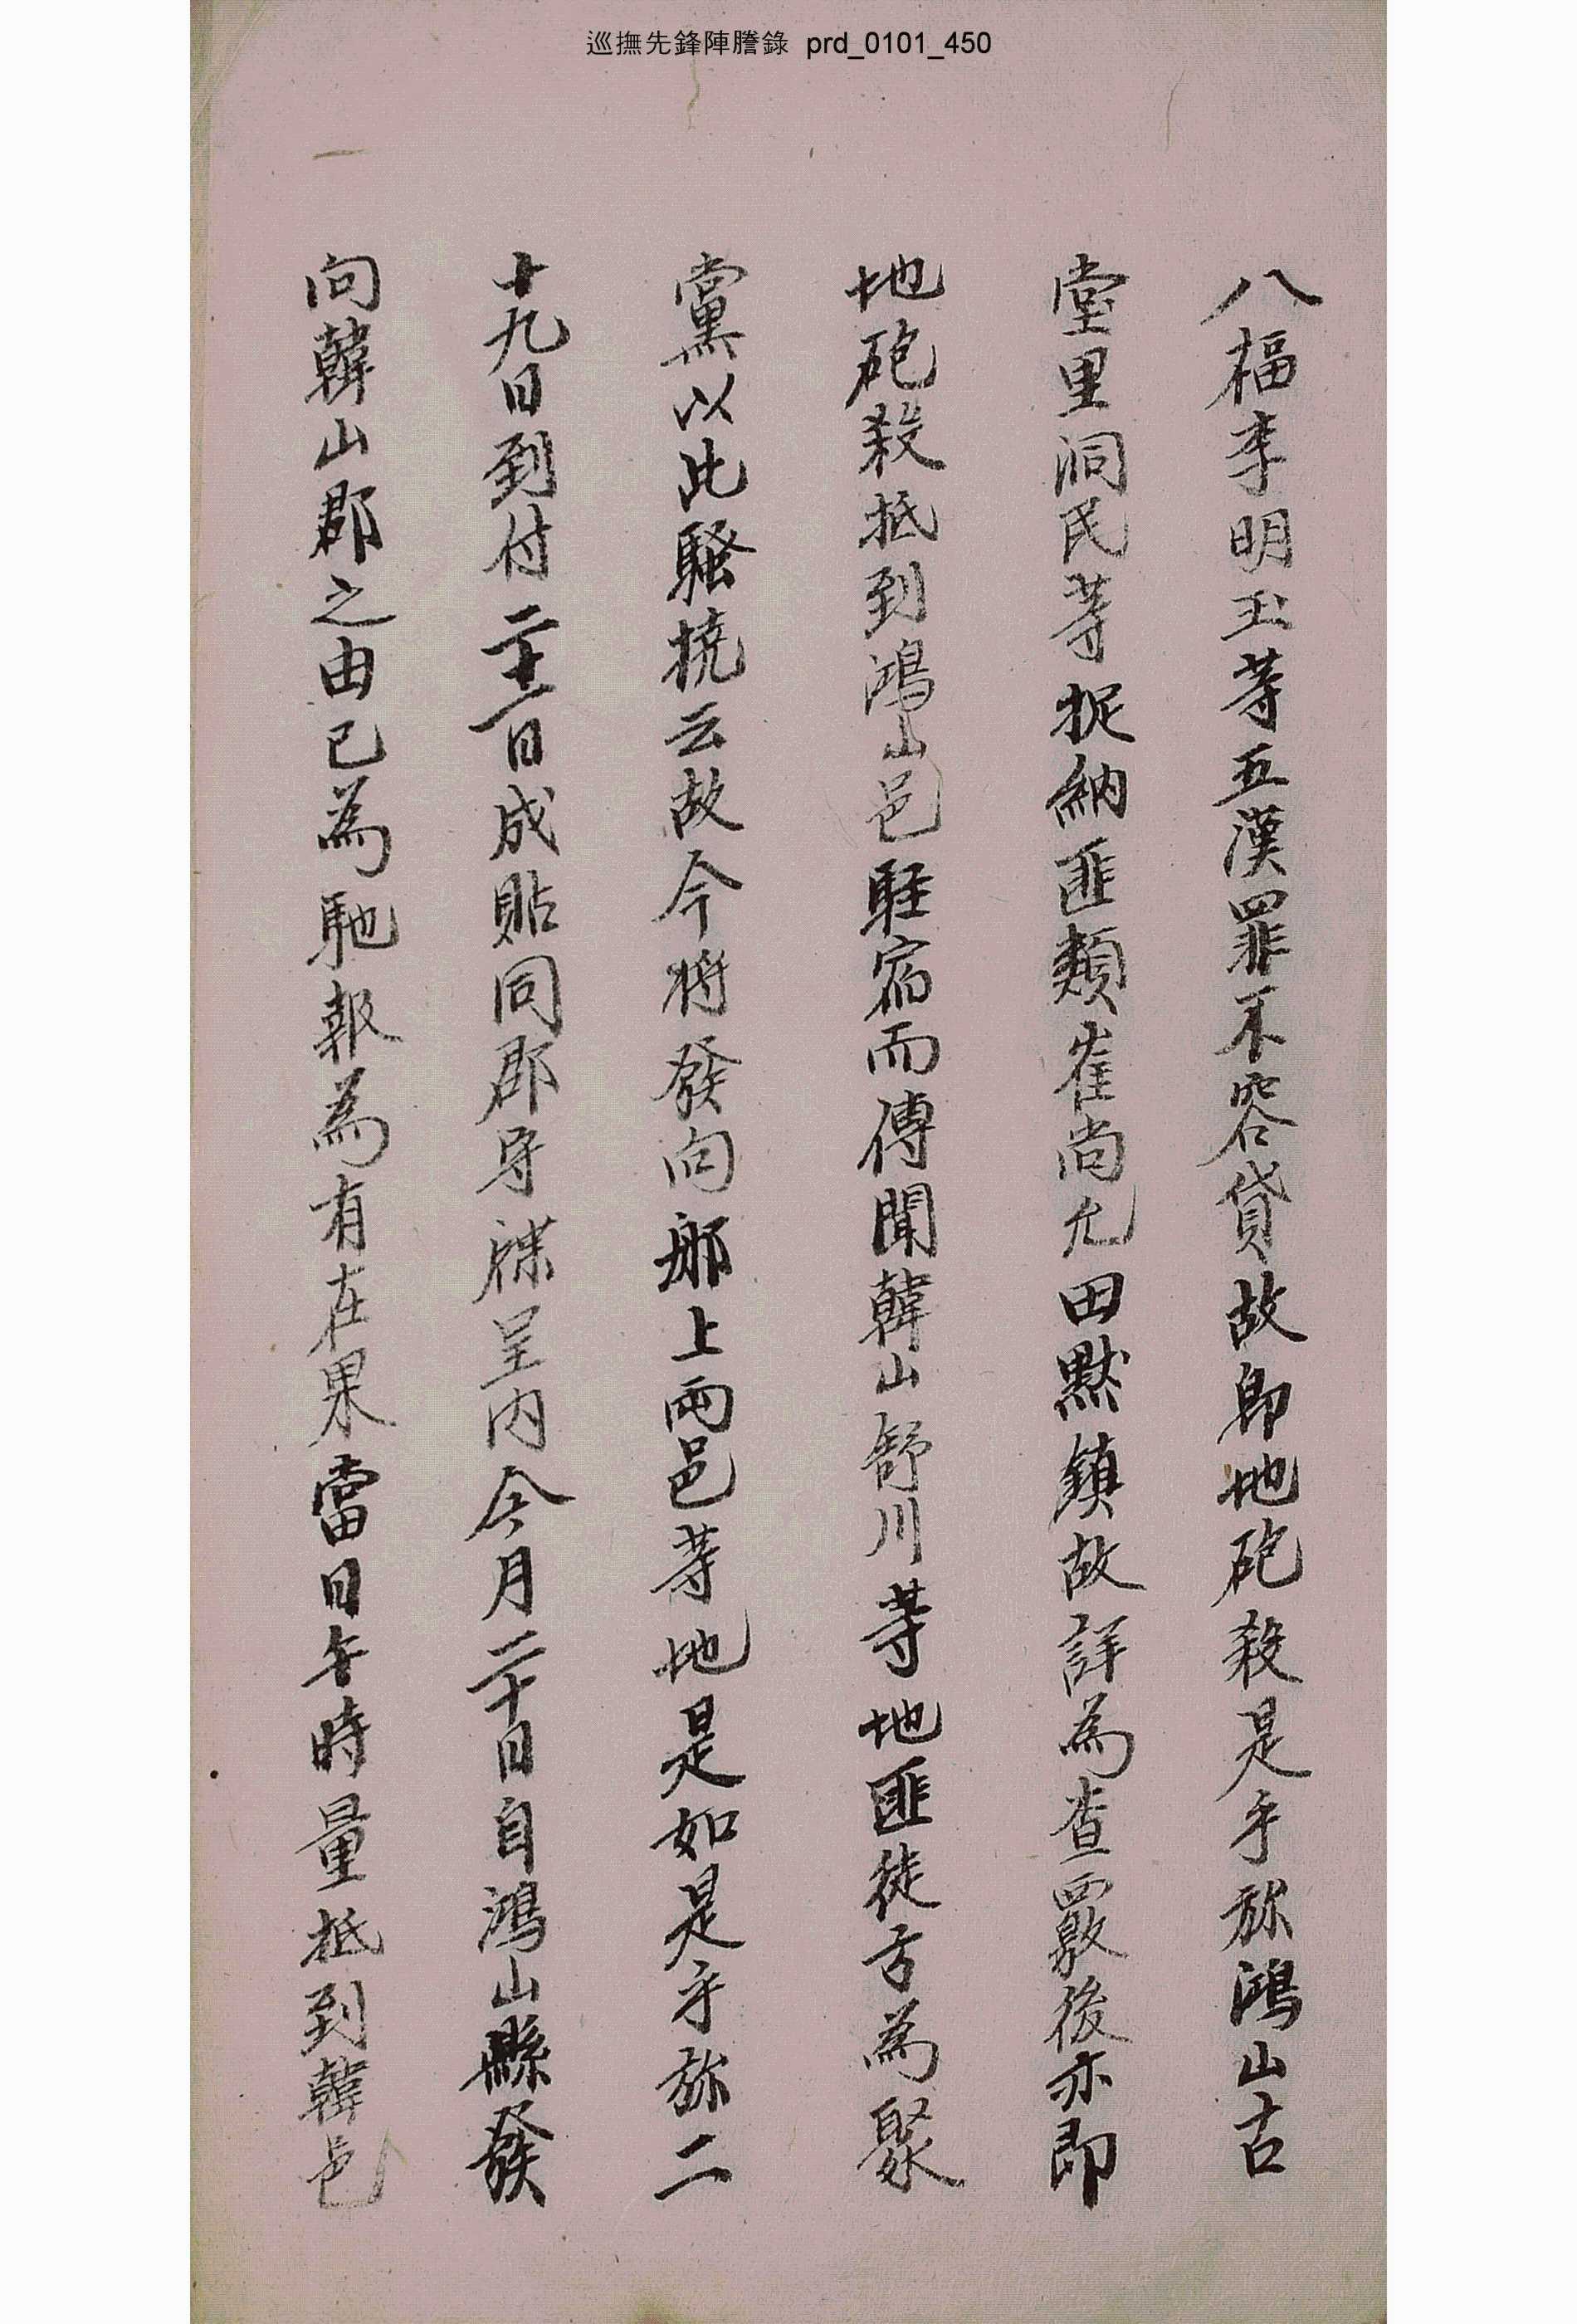 巡撫先鋒陣謄錄 prd_0101_450
八福李明玉等五漢罪不容貸故卽地砲殺是乎旀鴻山古
堂里洞民等捉納匪類崔尙允田黙鎭故詳爲査覈後亦卽
地砲殺抵到鴻山邑駐宿而傳聞韓山舒川等地匪徒方爲聚
黨以此騷撓云故今將發向那上兩邑等地是如是乎旀二
十九日到付二十一日成貼同郡守牒呈內今月二十日自鴻山縣發
向韓山郡之由已爲馳報爲有在果當日午時量抵到韓邑